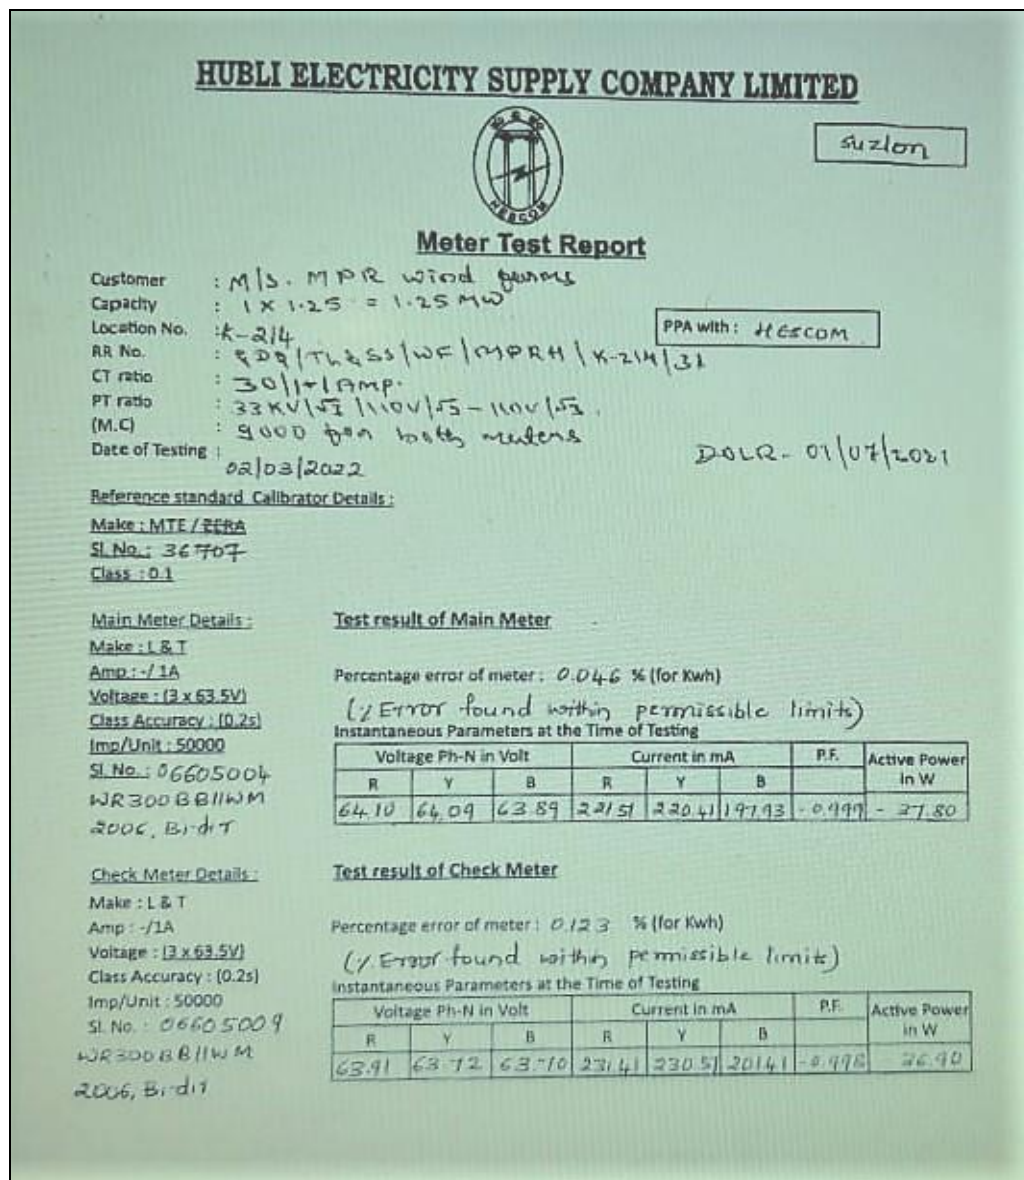 HUBLI ELECTRICITY SUPPLY COMPANY LIMITED
HESCOM
suzlon
Meter Test Report
Customer : M/s. MPR wind
Capacity : 1 x 1.25 = 1.25 MW
Location No. : K-214
PPA with : HESCOM
RR No. : /TL&SS/WF/MPRH/K-214/31
CT ratio : 30/1-1 Amp.
PT ratio : 33KV/√3/110V/√3-110V/√3.
(M.C) : 9000 for both meters
Date of Testing :
02/03/2022
DOLR- 01/07/2021
Reference standard Calibrator Details :
Make : MTE / ZERA
Sl. No. : 36707
Class : 0.1
Main Meter Details :
Make : L & T
Amp : -/ 1A
Voltage : (3 x 63.5V)
Class Accuracy : (0.2s)
Imp/Unit : 50000
Sl. No. : 06605004
WR300BB11WM
2006, Bi-dir
Test result of Main Meter
Percentage error of meter : 0.046 % (for Kwh)
(% Error found within permissible limits)
Instantaneous Parameters at the Time of Testing
Voltage Ph-N in Volt Current in mA P.F. Active Power in W
R Y B R Y B
64.10 64.09 63.89 221.51 220.41 197.93 -0.999 - 37.80
Check Meter Details :
Make : L & T
Amp : -/1A
Voltage : (3 x 63.5V)
Class Accuracy : (0.2s)
Imp/Unit : 50000
Sl. No. : 06605009
WR300BB11WM
2006, Bi-dir
Test result of Check Meter
Percentage error of meter : 0.123 % (for Kwh)
(% Error found within permissible limits)
Instantaneous Parameters at the Time of Testing
Voltage Ph-N in Volt Current in mA P.F. Active Power in W
R Y B R Y B
63.91 63.72 63.70 231.41 230.51 201.41 -0.998 36.90